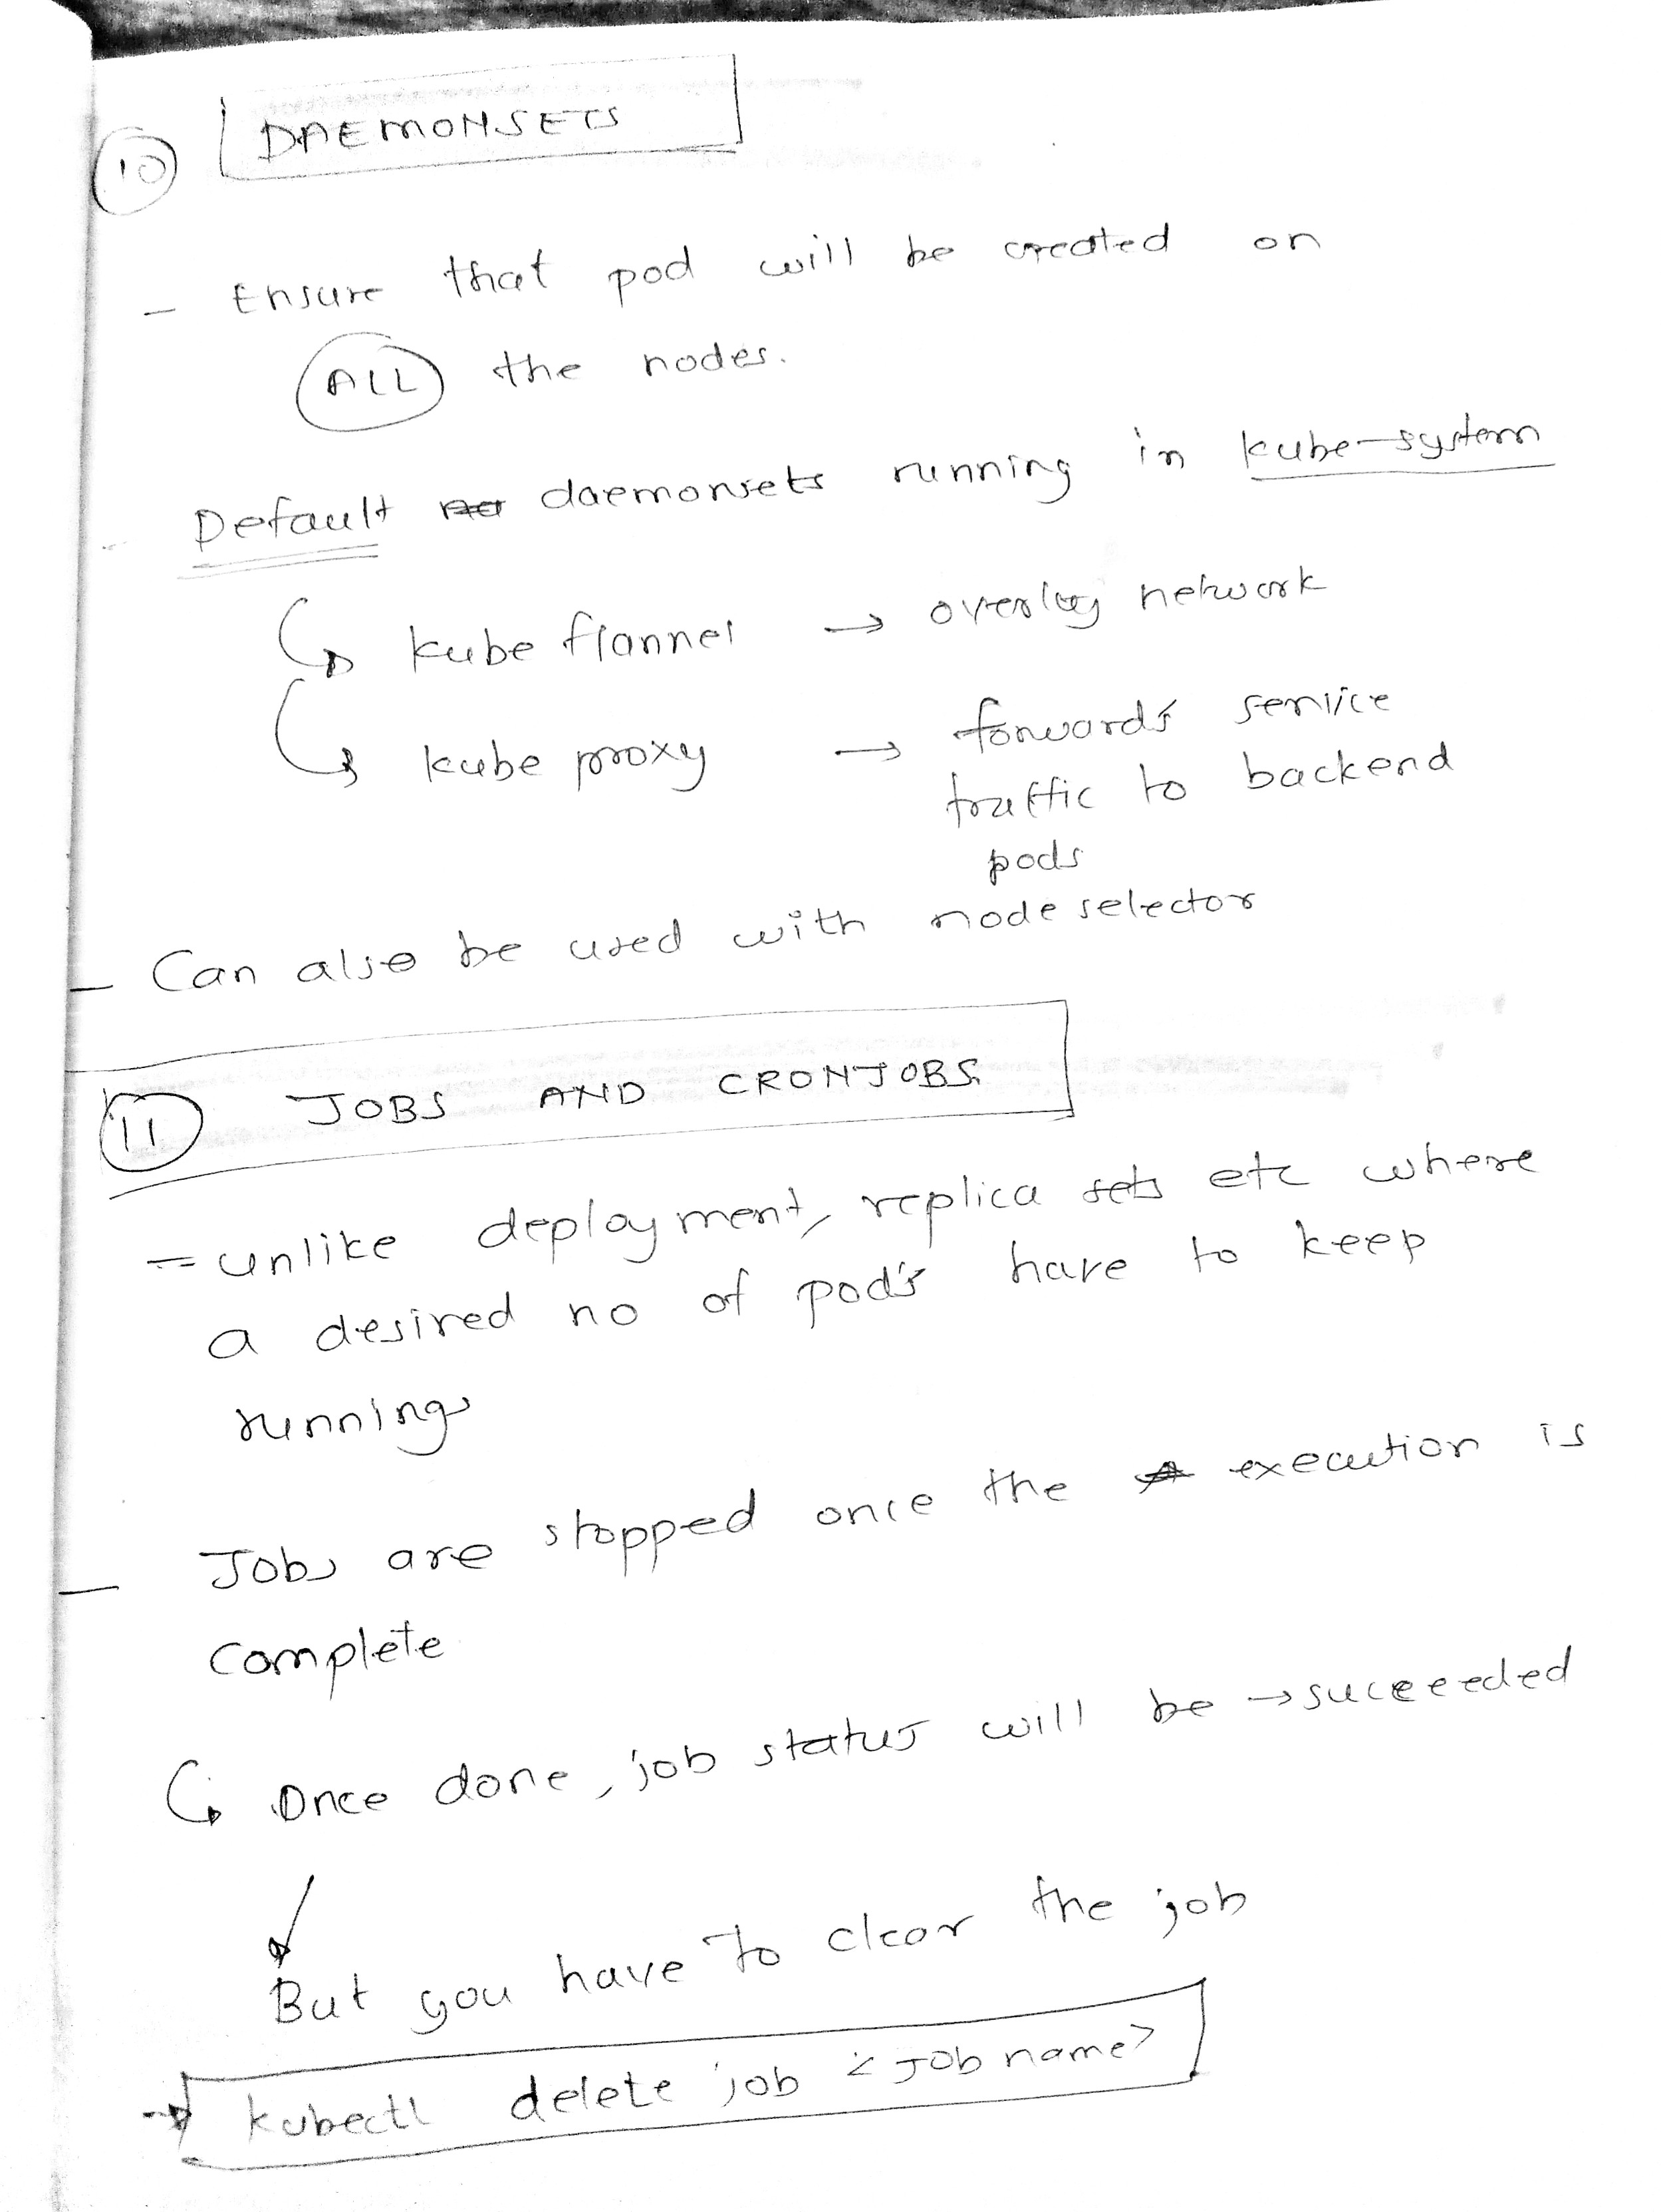 10 DAEMONSETS
- Ensure that pod will be created on
ALL the nodes.
- Default daemonsets running in kube-system
kube flannel → overlay network
kube proxy → forwards service
traffic to backend
pods
- Can also be used with node selector
11 JOBS AND CRONJOBS
- unlike deployment, replica sets etc where
a desired no of pod's have to keep
running
- Jobs are stopped once the execution is
complete
Once done, job status will be → suceeeded
But you have to clear the job
→ kubectl delete job <Job name>